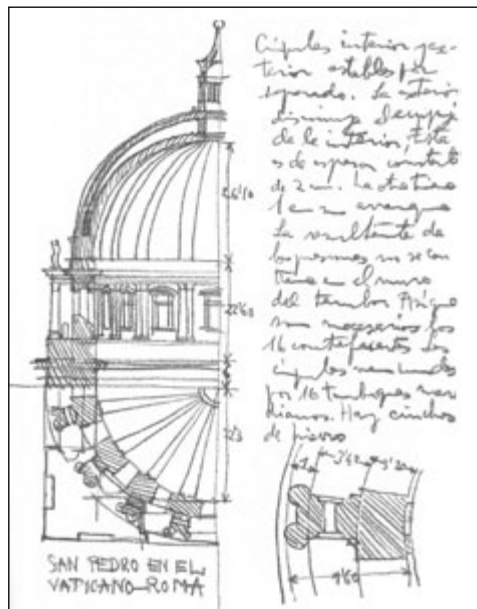 Cúpulas interior y ex-
terior estables por
separado. La exterior
disminuye
de la interior, ésta
es de espesor constante
de 2 m. La exterior
1 en su arranque
La resultante de
no se con
tiene en el muro
del tambor. Asi que
son necesarios los
16 contrafuertes. Las
cúpulas van unidas
por 16 tabiques meri
dianos. Hay cinchos
de hierro
22'60
SAN PEDRO EN EL
VATICANO-ROMA
9'60